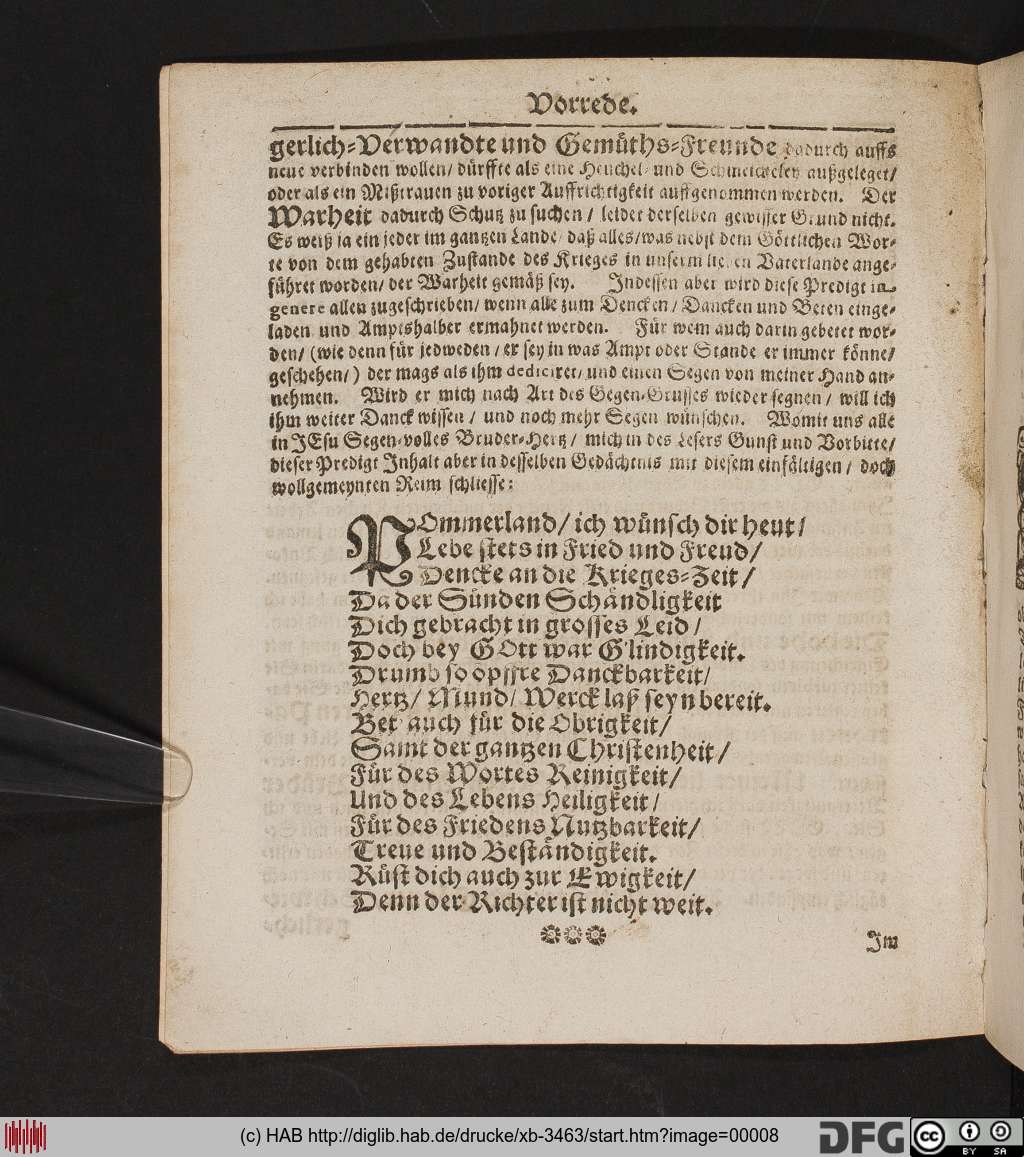 Vorrede.
gerlich-Verwandte und Gemüths-Freunde dadurch auffs
neue verbinden wollen/ dürffte als eine Heuchel- und Schmeicheley außgeleget/
oder als ein Mißtrauen zu voriger Auffrichtigkeit auffgenommen werden. Der
Warheit dadurch Schutz zu suchen / leidet derselben gewisser Grund nicht.
Es weiß ja ein jeder im gantzen Lande/ daß alles/ was nebst dem Göttlichen Wor-
te von dem gehabten Zustande des Krieges in unserm lieben Vaterlande ange-
führet worden/ der Warheit gemäß sey. Indessen aber wird diese Predigt in
genere allen zugeschrieben/ wenn alle zum Dencken / Dancken und Beten einge-
laden und Amptshalber ermahnet werden. Für wem auch darin gebetet wor-
den/ (wie denn für jedweden / er sey in was Ampt oder Stande er immer könne/
geschehen/) der mags als ihm dediciret/ und einen Segen von meiner Hand an-
nehmen. Wird er mich nach Art des Gegen-Grusses wieder segnen / will ich
ihm weiter Danck wissen / und noch mehr Segen wünschen. Womit uns alle
in JEsu Segen-volles Bruder-Hertz / mich in des Lesers Gunst und Vorbitte/
dieser Predigt Inhalt aber in desselben Gedächtnis mit diesem einfältigen / doch
wollgemeynten Reim schliesse:
POmmerland/ ich wünsch dir heut/
Lebe stets in Fried und Freud/
Dencke an die Krieges-Zeit/
Da der Sünden Schändligkeit
Dich gebracht in grosses Leid/
Doch bey GOtt war G'lindigkeit.
Drumb so opffre Danckbarkeit/
Hertz/ Mund/ Werck laß seyn bereit.
Bet' auch für die Obrigkeit/
Samt der gantzen Christenheit/
Für des Wortes Reinigkeit/
Und des Lebens Heiligkeit/
Für des Friedens Nutzbarkeit/
Treue und Beständigkeit.
Rüst dich auch zur Ewigkeit/
Denn der Richter ist nicht weit.
Im
(c) HAB http://diglib.hab.de/drucke/xb-3463/start.htm?image=00008
DFG
cc BY SA